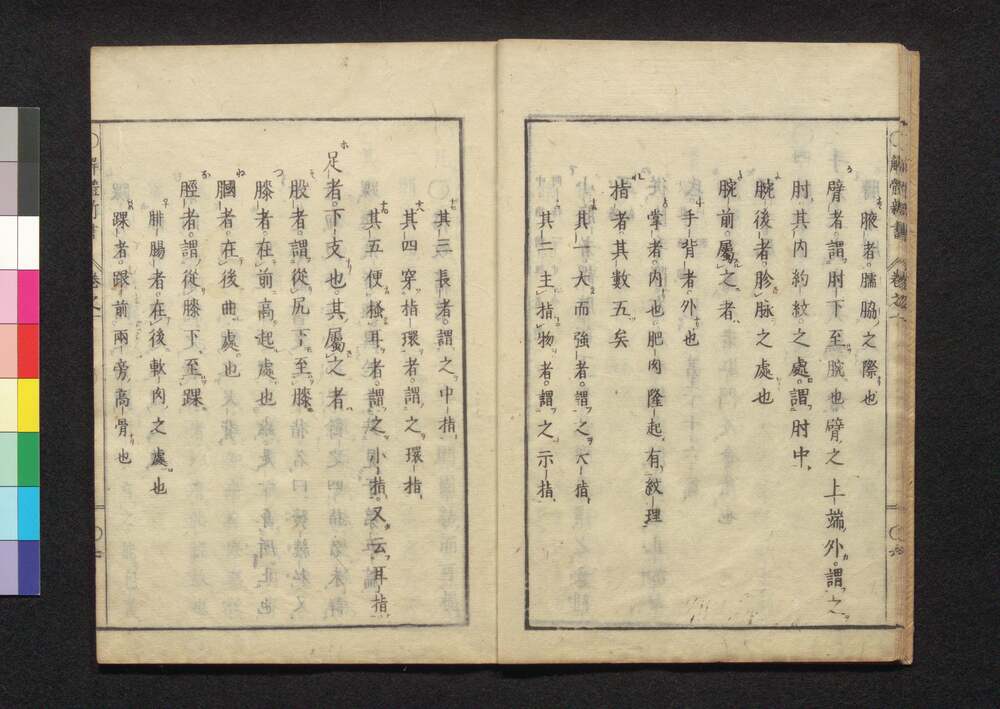 腋者臑脇之際也
臂者謂肘下至腕也臂之上端外謂之
肘其内約紋之處謂肘中
腕後者胗脉之處也
腕前屬之者
手背者外也
掌者内也肥肉隆起有紋理
指者其數五矣
其一大而強者謂之大指
其二主指物者謂之示指
其三長者謂之中指
其四穿指環者謂之環指
其五便掻耳者謂之小指又云耳指
足者下支也其屬之者
股者謂從尻下至膝
膝者在前高起處也
膕者在後曲處也
脛者謂從膝下至踝
腓腸者在後軟肉之處也
踝者跟前兩旁高骨也
卷之一